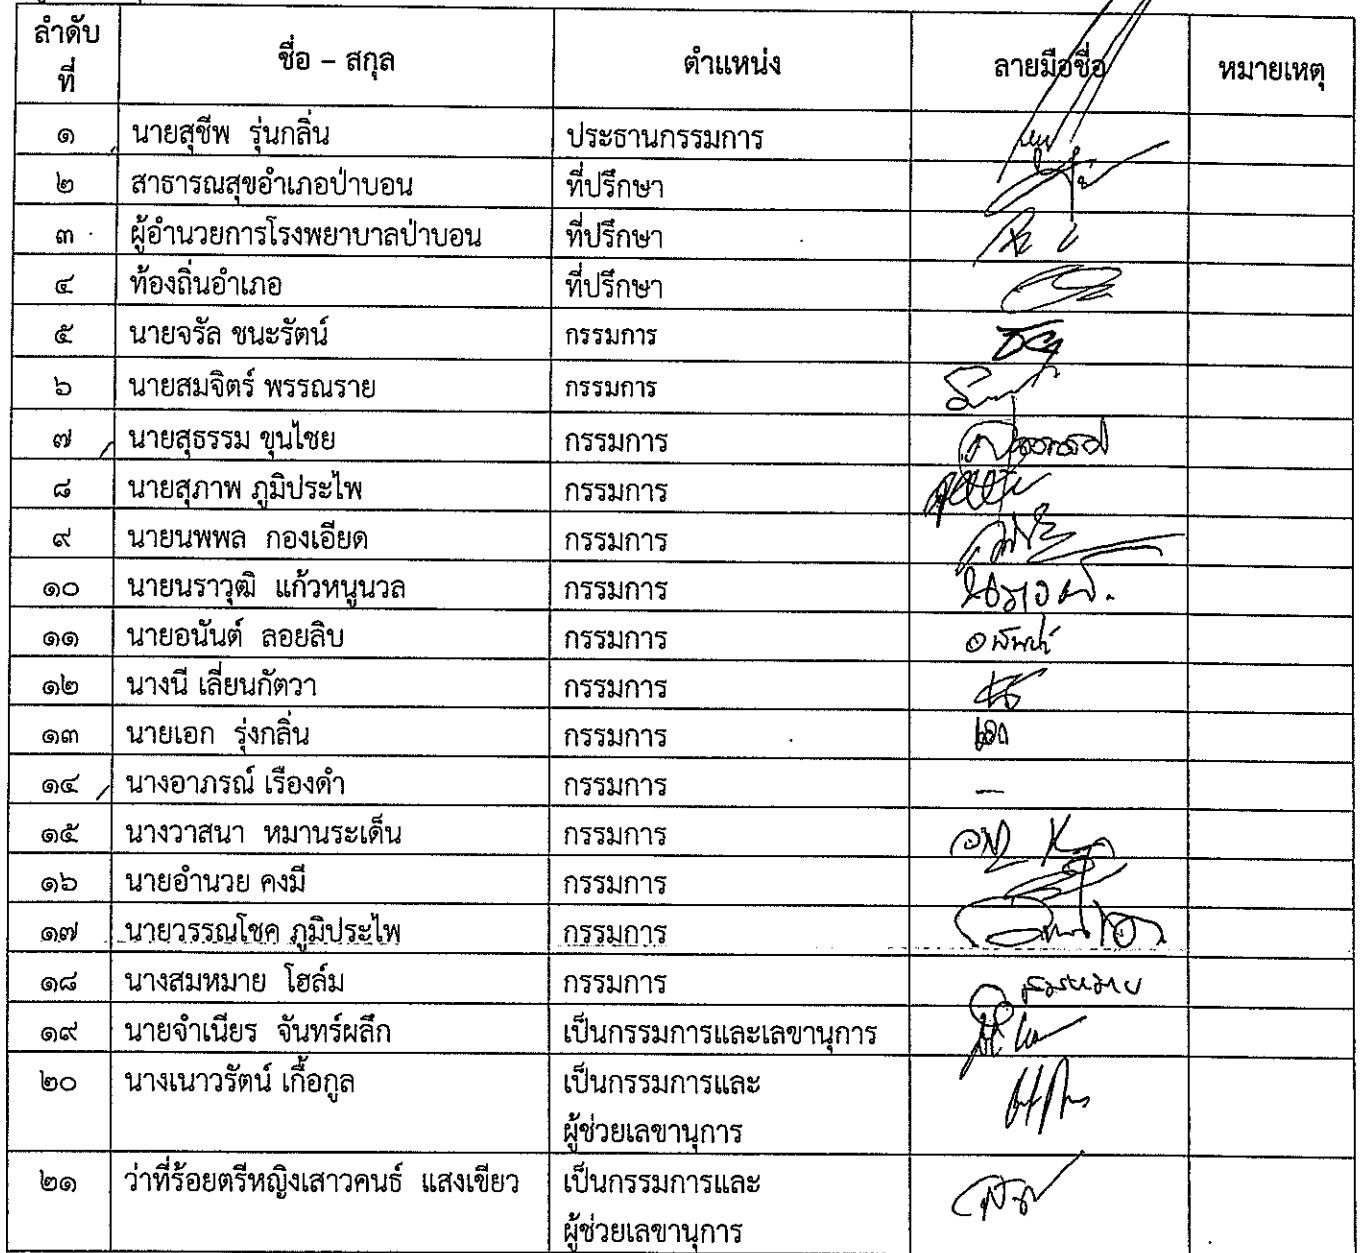 ลำดับ
ที่
ชื่อ – สกุล
ตำแหน่ง
ลายมือชื่อ
หมายเหตุ
๑ นายสุชีพ รุ่นกลิ่น ประธานกรรมการ
๒ สาธารณสุขอำเภอป่าบอน ที่ปรึกษา
๓ ผู้อำนวยการโรงพยาบาลป่าบอน ที่ปรึกษา
๔ ท้องถิ่นอำเภอ ที่ปรึกษา
๕ นายจรัล ชนะรัตน์ กรรมการ
๖ นายสมจิตร์ พรรณราย กรรมการ
๗ นายสุธรรม ขุนไชย กรรมการ
๘ นายสุภาพ ภูมิประไพ กรรมการ
๙ นายนพพล กองเอียด กรรมการ
๑๐ นายนราวุฒิ แก้วหนูนวล กรรมการ
๑๑ นายอนันต์ ลอยลิบ กรรมการ
๑๒ นางนี เลี่ยนกัตวา กรรมการ
๑๓ นายเอก รุ่งกลิ่น กรรมการ เอก
๑๔ นางอาภรณ์ เรืองดำ กรรมการ –
๑๕ นางวาสนา หมานระเด็น กรรมการ
๑๖ นายอำนวย คงมี กรรมการ
๑๗ นายวรรณโชค ภูมิประไพ กรรมการ
๑๘ นางสมหมาย โฮล์ม กรรมการ สมหมาย
๑๙ นายจำเนียร จันทร์ผลึก เป็นกรรมการและเลขานุการ
๒๐ นางเนาวรัตน์ เกื้อกูล เป็นกรรมการและ
ผู้ช่วยเลขานุการ
๒๑ ว่าที่ร้อยตรีหญิงเสาวคนธ์ แสงเขียว เป็นกรรมการและ
ผู้ช่วยเลขานุการ